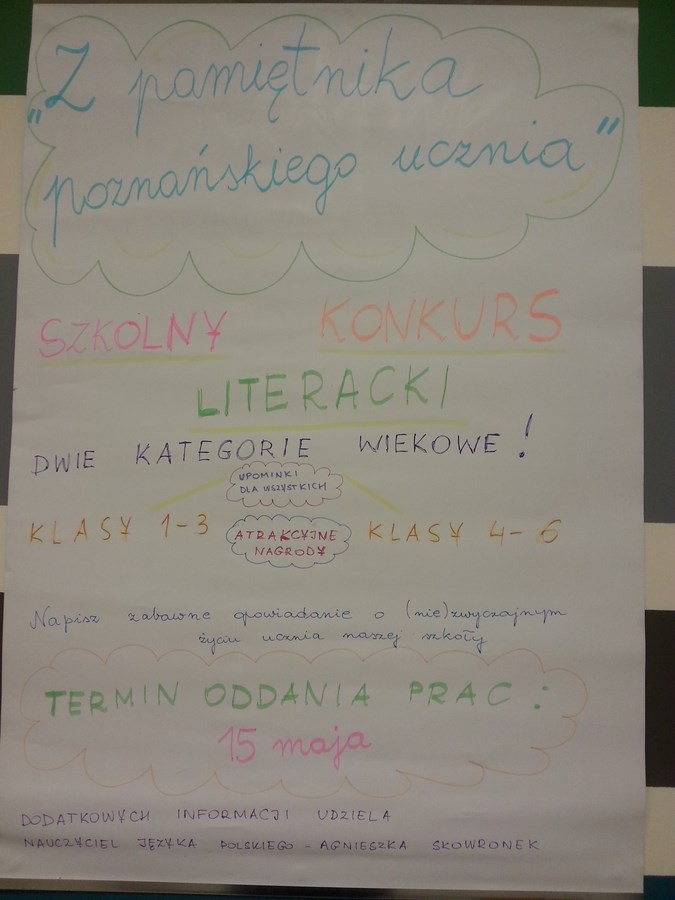 „Z pamiętnika
poznańskiego ucznia”
SZKOLNY KONKURS
LITERACKI
DWIE KATEGORIE WIEKOWE!
UPOMINKI
DLA WSZYSTKICH
KLASY 1-3
ATRAKCYJNE
NAGRODY
KLASY 4-6
Napisz zabawne opowiadanie o (nie)zwyczajnym
życiu ucznia naszej szkoły
TERMIN ODDANIA PRAC:
15 maja
DODATKOWYCH INFORMACJI UDZIELA
NAUCZYCIEL JĘZYKA POLSKIEGO - AGNIESZKA SKOWRONEK